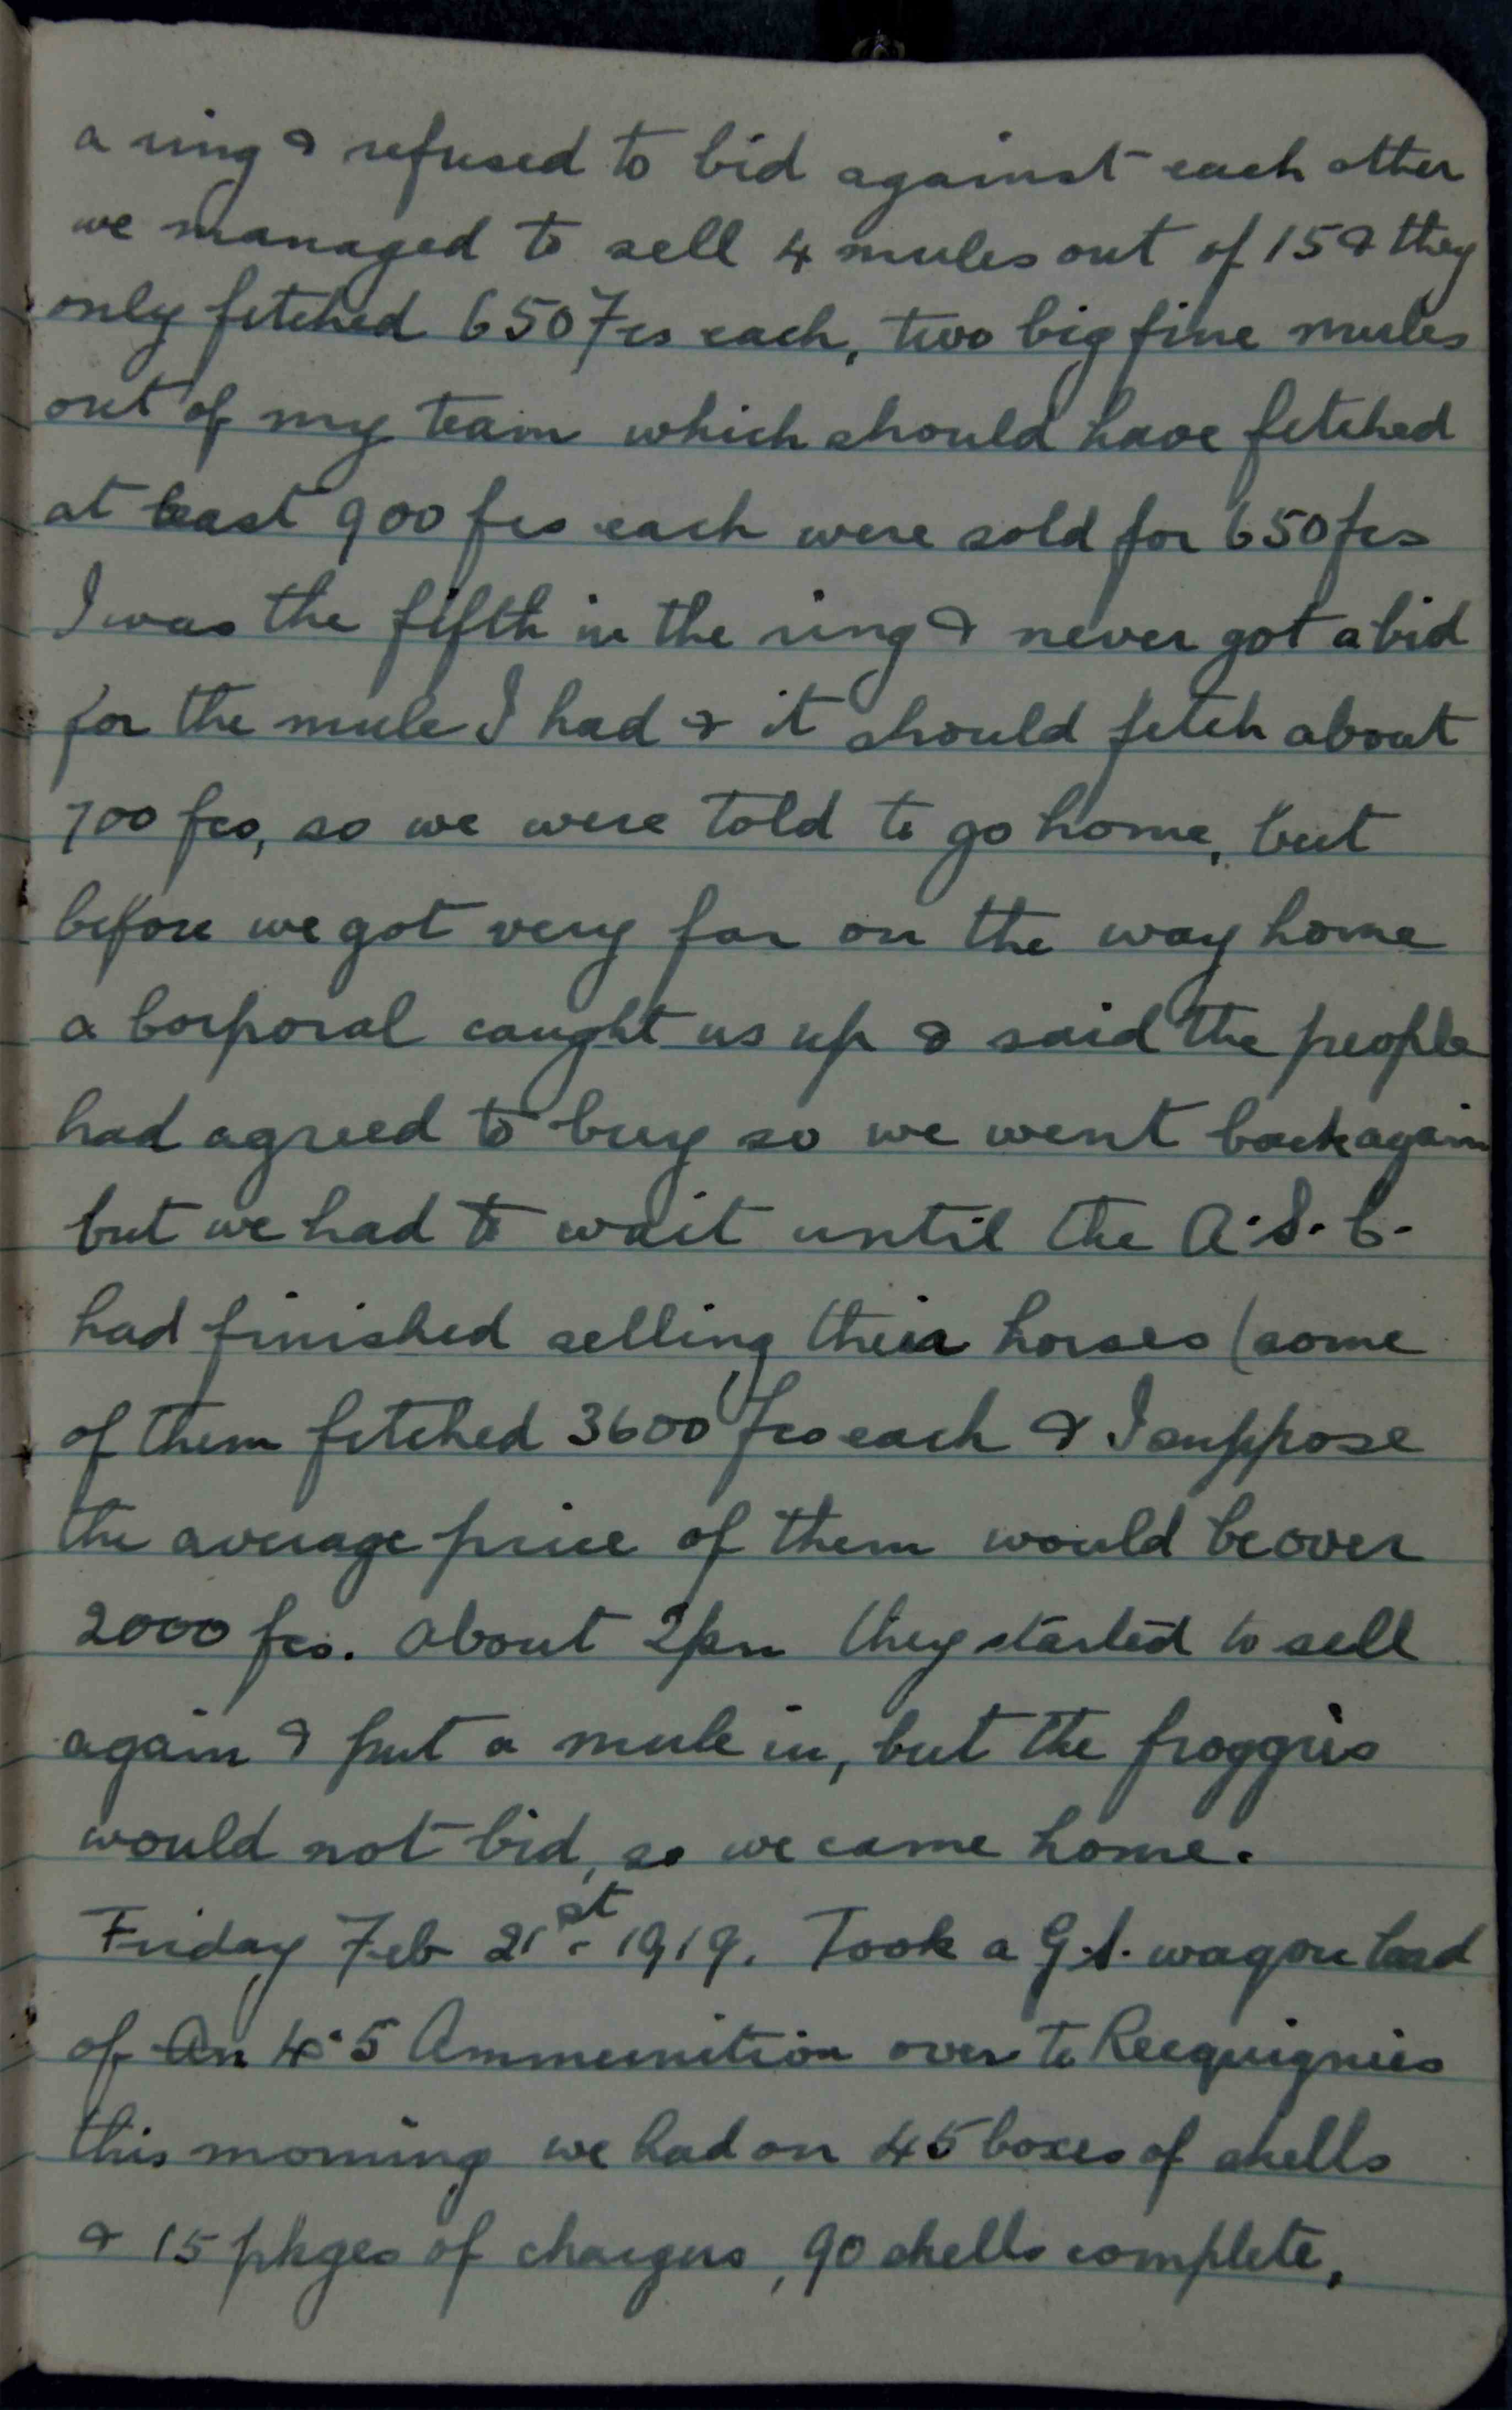 a ring & refused to bid against each other
we managed to sell 4 mules out of 15 & they
only fetched 650 Fcs each, two big fine mules
out of my team which should have fetched
at least 900 fcs each were sold for 650 fcs
I was the fifth in the ring & never got a bid
for the mule I had & it should fetch about
700 fcs, so we were told to go home, but
before we got very far on the way home
a Corporal caught us up & said the people
had agreed to buy so we went back again
but we had to wait until the A.S.C.
had finished selling their horses (some
of them fetched 3600 Fcs each & I suppose
the average price of them would be over
2000 fcs. About 2pm they started to sell
again & put a mule in, but the froggies
would not bid, so we came home.
Friday Feb 21st. 1919. Took a G.S. wagon load
of An 4.5 Ammunition over to Recquignies
this morning we had on 45 boxes of shells
& 15 pkges of chargers, 90 shells complete,